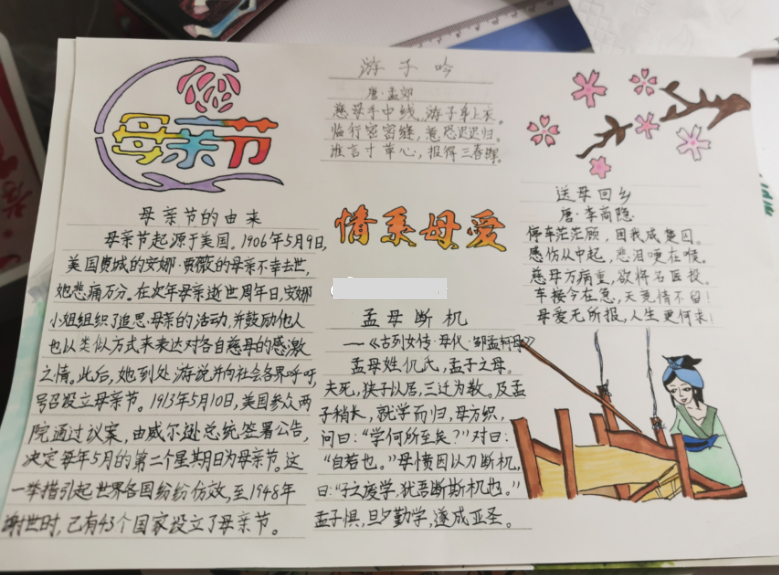 母亲节
母亲节的由来
母亲节起源于美国。1906年5月9日,
美国费城的安娜·贾薇的母亲不幸去世,
她悲痛万分。在次年母亲逝世周年日,安娜
小姐组织了追思母亲的活动,并鼓励他人
也以类似方式来表达对各自慈母的感激
之情。此后,她到处游说并向社会各界呼吁,
号召设立母亲节。1913年5月10日,美国参众两
院通过议案,由威尔逊总统签署公告,
决定每年5月的第二个星期日为母亲节。这
一举措引起世界各国纷纷仿效,至1948年
谢世时,已有43个国家设立了母亲节。
游子吟
唐·孟郊
慈母手中线,游子身上衣。
临行密密缝,意恐迟迟归。
谁言寸草心,报得三春晖。
情系母爱
孟母断机
——《古列女传·母仪·邹孟轲母》
孟母姓仉氏,孟子之母。
夫死,狭子以居,三迁为教。及孟
子稍长,就学而归,母方织,
问曰:“学何所至矣?”对曰:
“自若也。”母愤因以刀断机,
曰:“子之废学,犹吾断斯机也。”
孟子惧,旦夕勤学,遂成亚圣。
送母回乡
唐·李商隐
停车茫茫顾,困我成楚囚。
感伤从中起,悲泪哽在喉。
慈母方病重,欲将名医投。
车接今在急,天竟情不留!
母爱无所报,人生更何求!